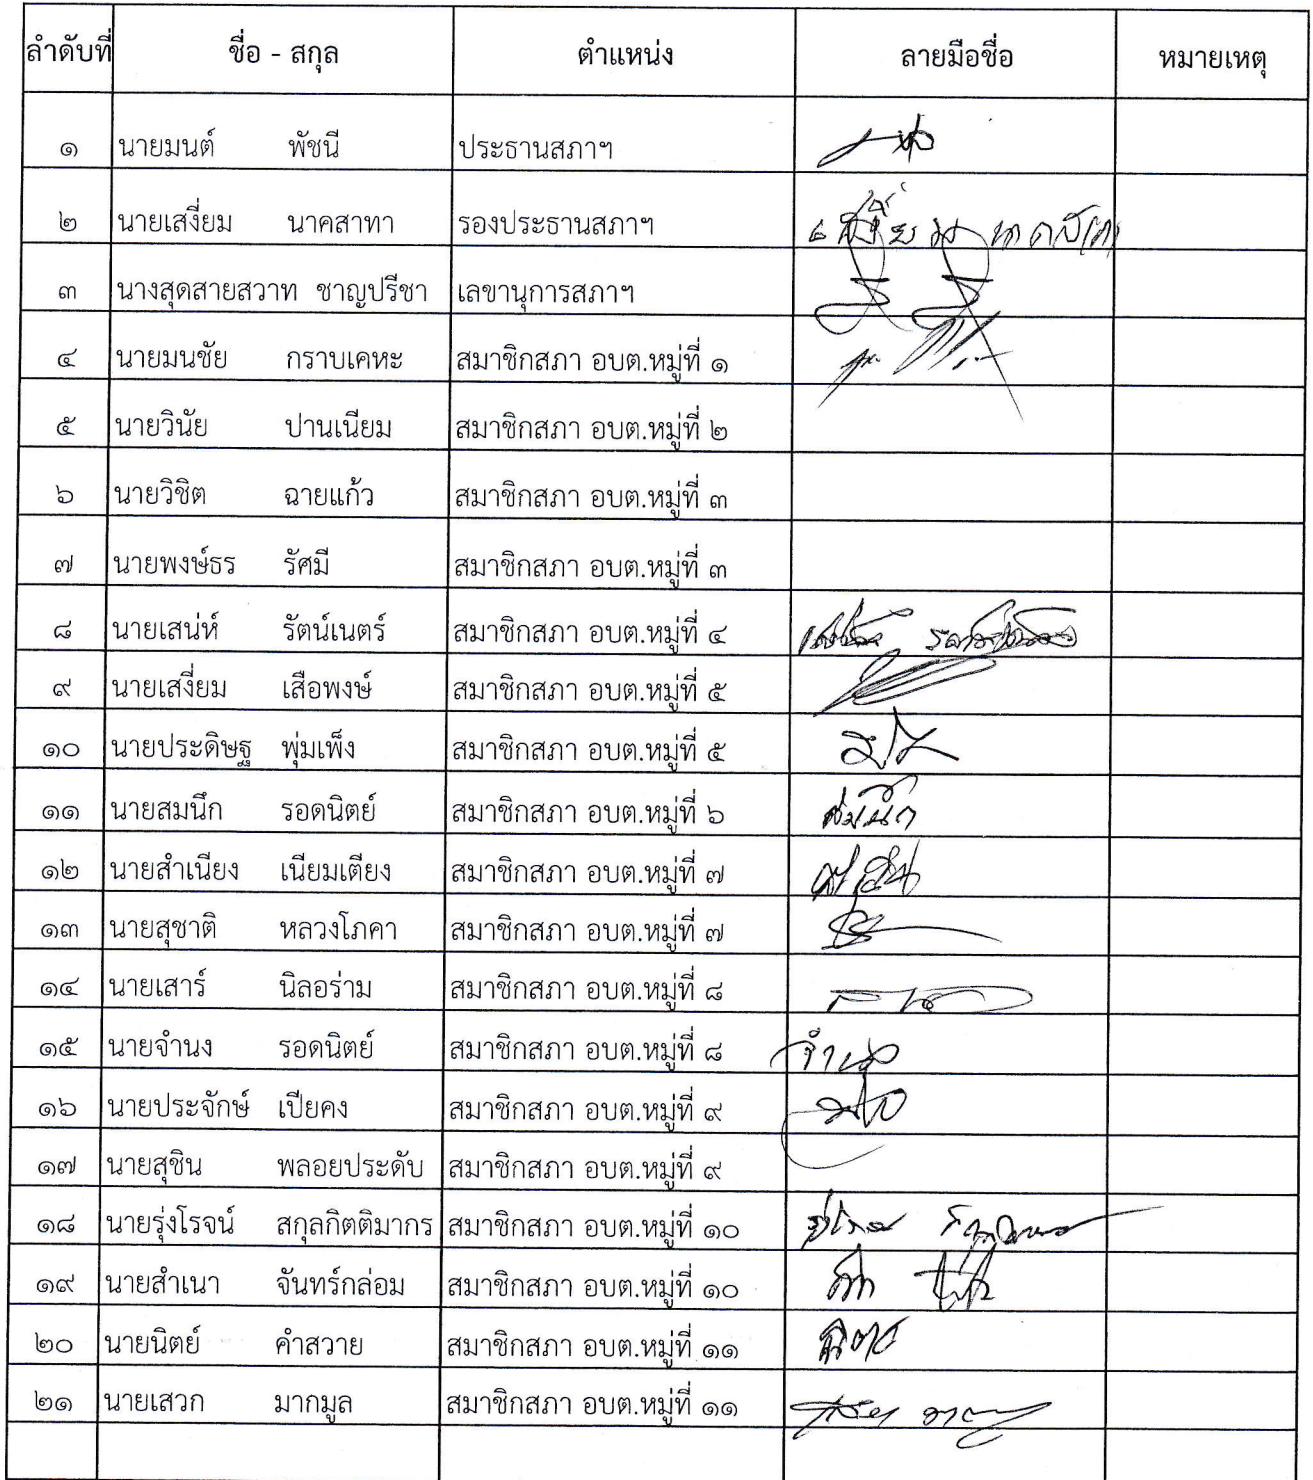 ลำดับที่ ชื่อ - สกุล ตำแหน่ง ลายมือชื่อ หมายเหตุ
๑ นายมนต์ พัชนี ประธานสภาฯ
๒ นายเสงี่ยม นาคสาทา รองประธานสภาฯ เสงี่ยม นาคสาทา
๓ นางสุดสายสวาท ชาญปรีชา เลขานุการสภาฯ
๔ นายมนชัย กราบเคหะ สมาชิกสภา อบต.หมู่ที่ ๑
๕ นายวินัย ปานเนียม สมาชิกสภา อบต.หมู่ที่ ๒
๖ นายวิชิต ฉายแก้ว สมาชิกสภา อบต.หมู่ที่ ๓
๗ นายพงษ์ธร รัศมี สมาชิกสภา อบต.หมู่ที่ ๓
๘ นายเสน่ห์ รัตน์เนตร์ สมาชิกสภา อบต.หมู่ที่ ๔
๙ นายเสงี่ยม เสือพงษ์ สมาชิกสภา อบต.หมู่ที่ ๕
๑๐ นายประดิษฐ พุ่มเพ็ง สมาชิกสภา อบต.หมู่ที่ ๕
๑๑ นายสมนึก รอดนิตย์ สมาชิกสภา อบต.หมู่ที่ ๖ สมนึก
๑๒ นายสำเนียง เนียมเตียง สมาชิกสภา อบต.หมู่ที่ ๗
๑๓ นายสุชาติ หลวงโภคา สมาชิกสภา อบต.หมู่ที่ ๗
๑๔ นายเสาร์ นิลอร่าม สมาชิกสภา อบต.หมู่ที่ ๘
๑๕ นายจำนง รอดนิตย์ สมาชิกสภา อบต.หมู่ที่ ๘ จำนง
๑๖ นายประจักษ์ เปียคง สมาชิกสภา อบต.หมู่ที่ ๙
๑๗ นายสุชิน พลอยประดับ สมาชิกสภา อบต.หมู่ที่ ๙
๑๘ นายรุ่งโรจน์ สกุลกิตติมากร สมาชิกสภา อบต.หมู่ที่ ๑๐
๑๙ นายสำเนา จันทร์กล่อม สมาชิกสภา อบต.หมู่ที่ ๑๐
๒๐ นายนิตย์ คำสวาย สมาชิกสภา อบต.หมู่ที่ ๑๑ นิตย์
๒๑ นายเสวก มากมูล สมาชิกสภา อบต.หมู่ที่ ๑๑